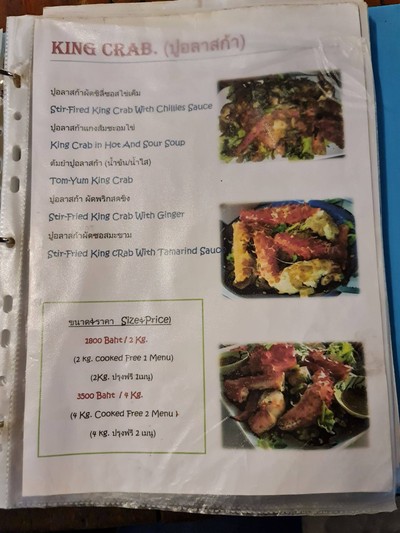 KING CRAB. (ปูอลาสก้า)
ปูอลาสก้าผัดชิลีซอสไข่เค็ม
Stir-Fired King Crab With Chillies Sauce
ปูอลาสก้าแกงส้มชะอมไข่
King Crab in Hot And Sour Soup
ต้มยำปูอลาสก้า (น้ำข้น/น้ำใส)
Tom-Yum King Crab
ปูอลาสก้า ผัดพริกสดขิง
Stir-Fried King Crab With Ginger
ปูอลาสก้าผัดซอสมะขาม
Stir-Fried King cRab With Tamarind Sauc
ขนาด&ราคา Size&Price)
1800 Baht / 2 Kg.
(2 kg. cooked Free 1 Menu)
(2Kg. ปรุงฟรี 1เมนู)
3500 Baht / 4 Kg.
(4 Kg. Cooked Free 2 Menu )
(4 kg. ปรุงฟรี 2 เมนู)